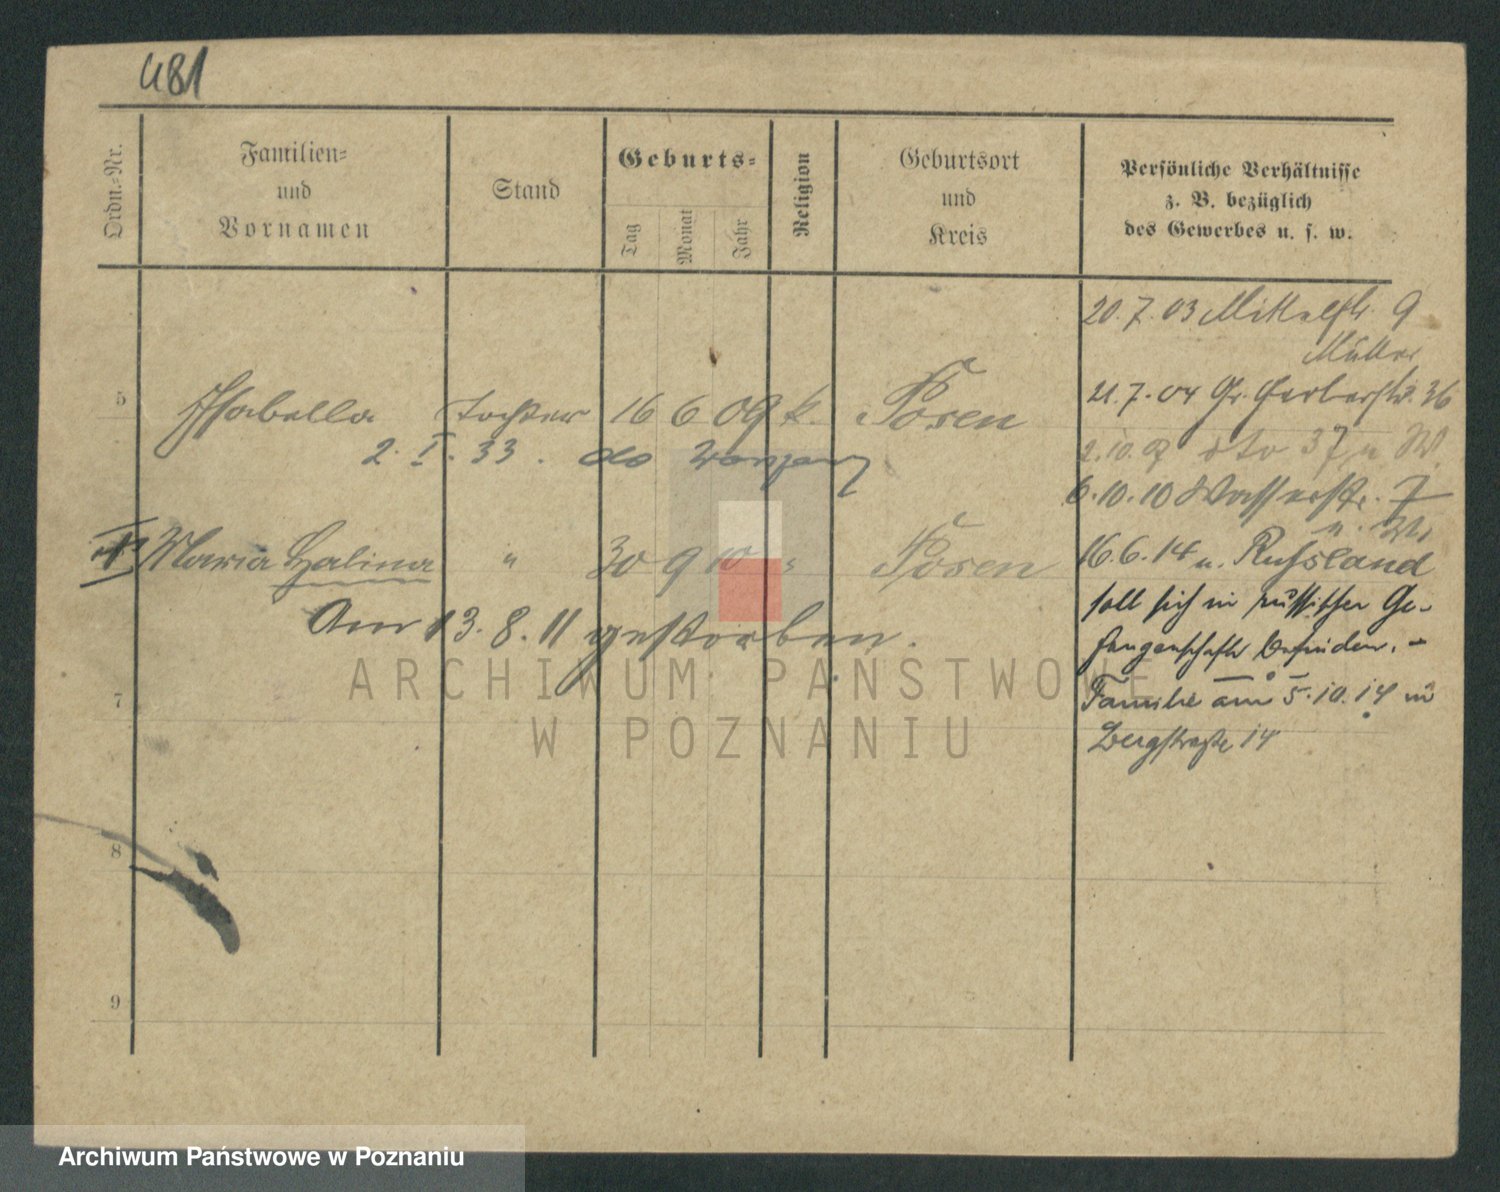 481
Ordn.=Nr.
Familien=
und
Vornamen
Stand
Geburts=
Tag
Monat
Jahr
Religion
Geburtsort
und
Kreis
Persönliche Verhältnisse
z. B. bezüglich
des Gewerbes u. s. w.
20.7.03 Mittelstr. 9
Müller
21.7.04 Gr. Gerberstr. 36
2.10. dto 37
6.10.10 Wasserstr. 7
u. W.
16.6.14 n. Russland
soll sich in russischer Ge-
fangenschaft befinden. -
Familie am 5.10.14 in
Bergstraße 14
5 Isabella Tochter 16 6 09 k. Posen
2. I. 33. do
Maria Halina " 30 9 10 " Posen
Am 13.8.11 gestorben.
7
8
9
ARCHIWUM PAŃSTWOWE
W POZNANIU
Archiwum Państwowe w Poznaniu